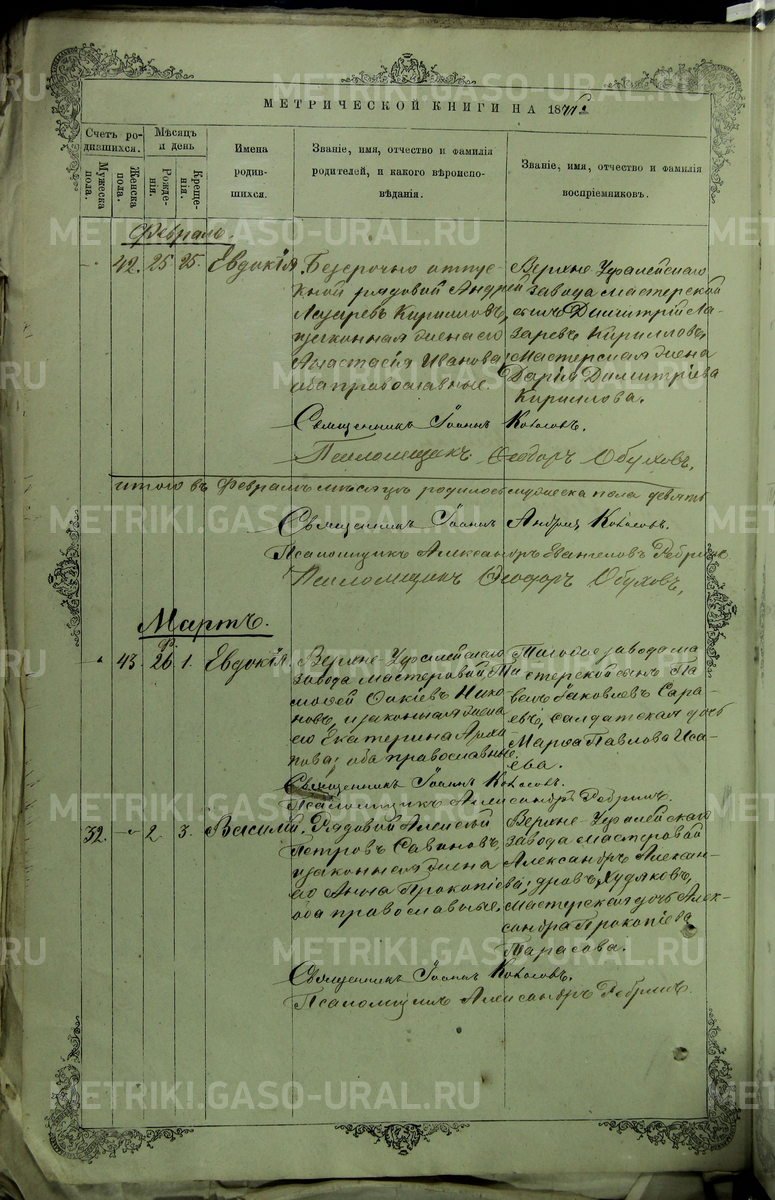 МЕТРИЧЕСКОЙ КНИГИ НА 187
Счетъ родившихся.
Мужеска пола.
Женска пола.
Мѣсяцъ и день
Рожденія.
Крещенія.
Имена родившихся.
Званіе, имя, отчество и фамилія родителей, и какого вѣроисповѣданія.
Званіе, имя, отчество и фамилія воспріемниковъ.
Февраль.
42. 25 25. Евдокія
Безсрочно отпускной рядовой Андрей
Лазаревъ Кирилловъ,
и законная жена его
Анастасія Иванова
оба православные.
Верхне Уфалейскаго
завода мастерской
сынъ Димитрій Лазаревъ Кирилловъ,
Мастерская жена
Дарія Димитріева
Кириллова.
Священникъ Іоаннъ
Псаломщикъ Ѳеодоръ Обуховъ.
Итого въ Февралѣ мѣсяцѣ родилось мужеска пола девять
Священникъ Іоаннъ Андреевъ
Псаломщикъ Александръ
Псаломщикъ Ѳеодоръ Обуховъ.
Мартъ.
43. Ф. 26. 1. Евдокія.
Верхне-Уфалейскаго
завода мастеровой Тимоѳей
Никоновъ, и законная жена
его Екатерина
оба православные.
Того же завода мастерской сынъ Павелъ Яковлевъ
солдатская дочь
Марѳа Павлова Исаева.
Священникъ Іоаннъ
Псаломщикъ Александръ
32. 2. 3. Василій.
Рядовой Алексѣй
Петровъ Савиновъ,
и законная жена
его Анна Прокопіева;
оба православные.
Верхне-Уфалейскаго
завода мастеровой
Александръ Александровъ Худяковъ,
Мастерская дочь Александра Прокопіева
Тарасова.
Священникъ Іоаннъ
Псаломщикъ Александръ
METRIKI.GASO-URAL.RU